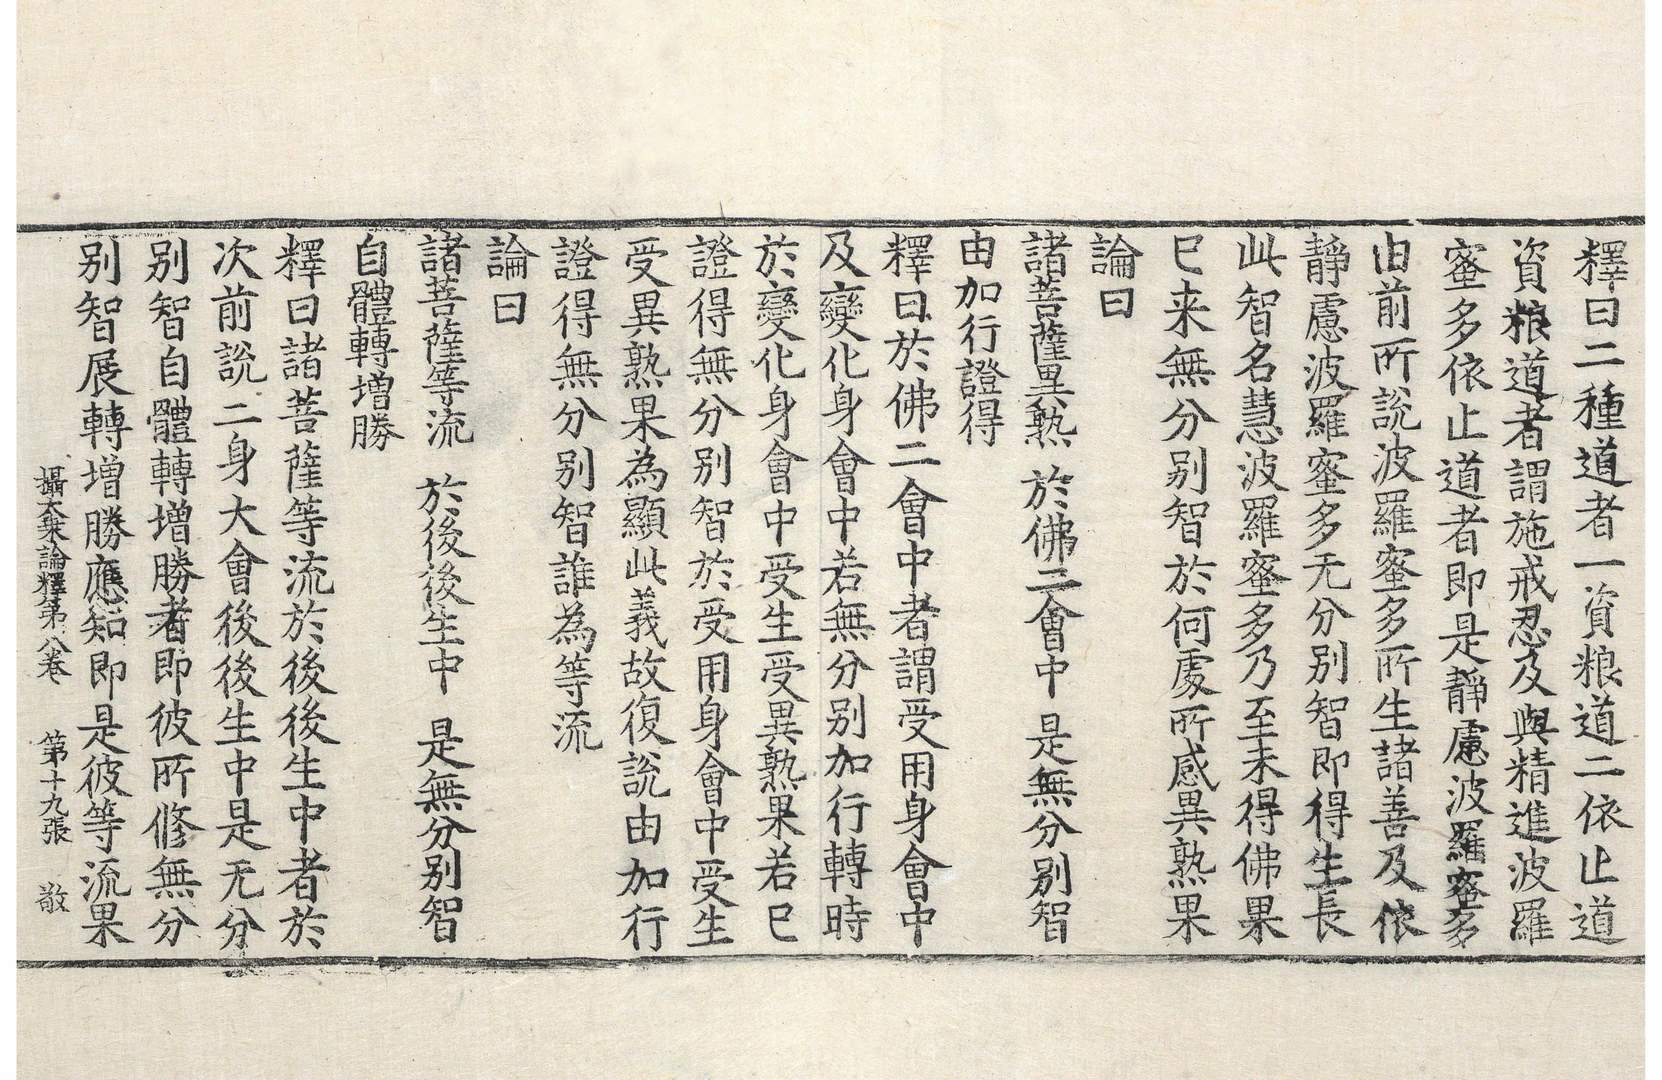 釋曰二種道者一資粮道二依止道
資粮道者謂施戒忍及與精進波羅
蜜多依止道者即是靜慮波羅蜜多
由前所說波羅蜜多所生諸善及依
靜慮波羅蜜多无分别智即得生長
此智名慧波羅蜜多乃至未得佛果
已来無分别智於何處所感異熟果
論曰
諸菩薩異熟 於佛二會中 是無分别智
由加行證得
釋曰於佛二會中者謂受用身會中
及變化身會中若無分别加行轉時
於變化身會中受生受異熟果若已
證得無分别智於受用身會中受生
受異熟果為顯此義故復說由加行
證得無分别智誰為等流
論曰
諸菩薩等流 於後後生中 是無分别智
自體轉增勝
釋曰諸菩薩等流於後後生中者於
次前說二身大會後後生中是无分
别智自體轉增勝者即彼所修無分
别智展轉增勝應知即是彼等流果
攝大乘論釋第八卷 第十九張 敬